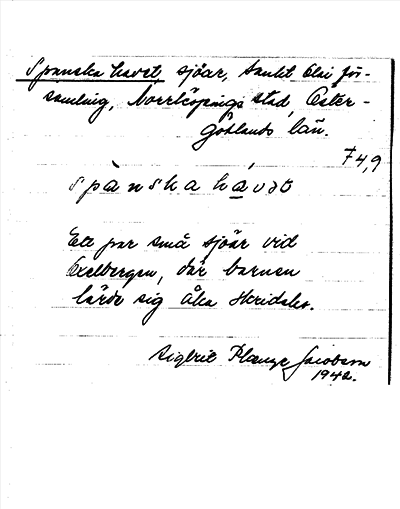 Spanska havet, sjöar, Sankt Olai för-
samling, Norrköpings stad, Öster-
götlands län.
F4,9
spànska hávət
Ett par små sjöar vid
Axelbergen, där barnen
lärde sig åka skridsko.
Sigbrit Plænge Jacobson
1942.